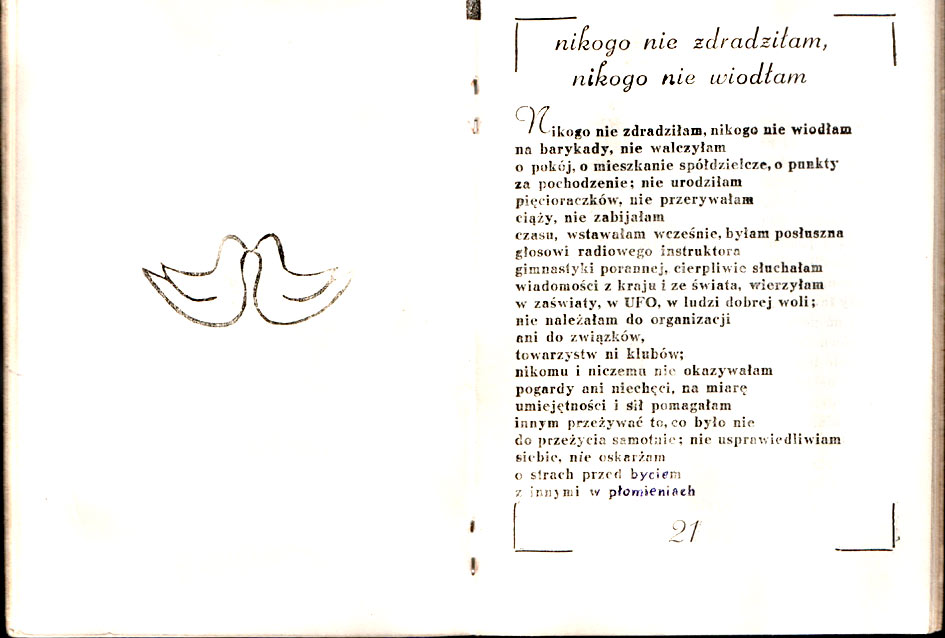 nikogo nie zdradziłam,
nikogo nie wiodłam
Nikogo nie zdradziłam, nikogo nie wiodłam
na barykady, nie walczyłam
o pokój, o mieszkanie spółdzielcze, o punkty
za pochodzenie; nie urodziłam
pięcioraczków, nie przerywałam
ciąży, nie zabijałam
czasu, wstawałam wcześnie, byłam posłuszna
głosowi radiowego instruktora
gimnastyki porannej, cierpliwie słuchałam
wiadomości z kraju i ze świata, wierzyłam
w zaświaty, w UFO, w ludzi dobrej woli;
nie należałam do organizacji
ani do związków,
towarzystw ni klubów;
nikomu i niczemu nie okazywałam
pogardy ani niechęci, na miarę
umiejętności i sił pomagałam
innym przeżywać to, co było nie
do przeżycia samotnie; nie usprawiedliwiam
siebie, nie oskarżam
o strach przed byciem
z innymi w płomieniach
21